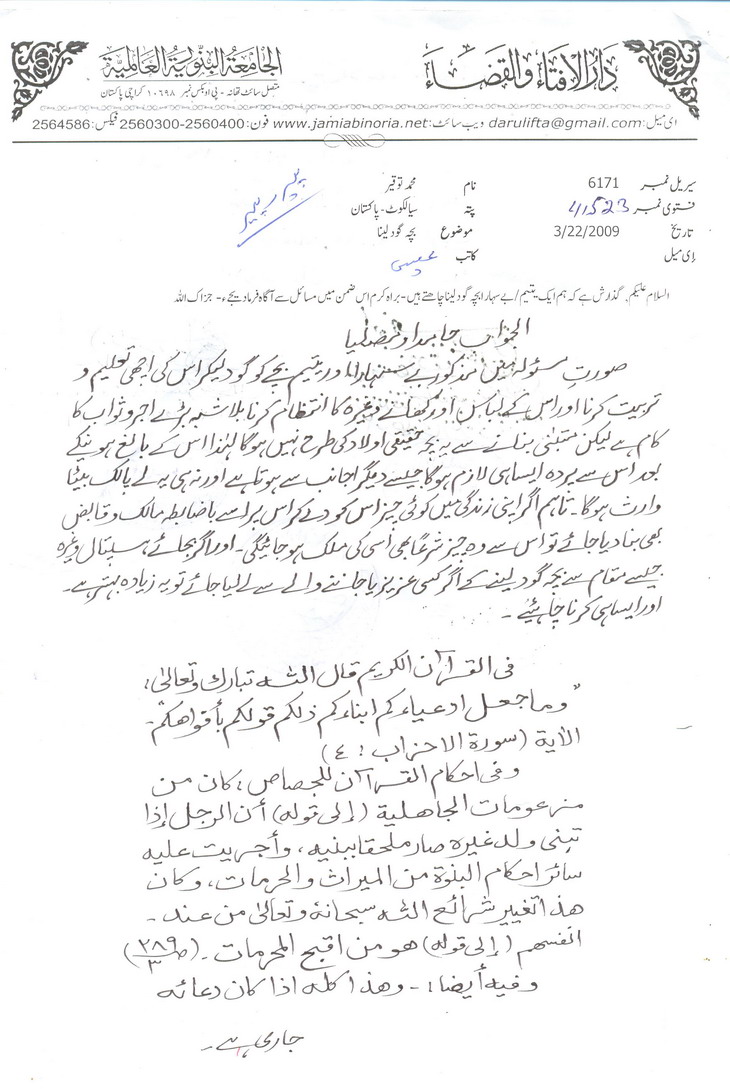 دَارُالافتاءِ وَالقضَاء
الجَامعَۃُ البنّوریَۃُ العَالمیَۃ
متصل سائٹ تھانہ - پی او بکس نمبر ۱۰۶۹۸ کراچی پاکستان
ای میل: darulifta@gmail.com ویب سائٹ: www.jamiabinoria.net فون: 2560300-2560400 فیکس: 2564586
سیریل نمبر 6171 نام محمد توقیر
فتویٰ نمبر 41523 پتہ سیالکوٹ-پاکستان
تاریخ 3/22/2009 موضوع بچہ گود لینا
ای میل کاتب
السلام علیکم, گذارش ہے کہ ہم ایک یتیم/بے سہارا بچہ گود لینا چاہتے ہیں-براہ کرم اس ضمن میں مسائل سے آگاہ فرما دیجۓ- جزاک اللہ
الجواب حامداً ومصلیا
صورتِ مسئولہ میں مذکور بے سہارا اور یتیم بچے کو گود لیکر اس کی اچھی تعلیم و
تربیت کرنا اور اس کے لباس اور کھانے وغیرہ کا انتظام کرنا بلاشبہ بڑے اجر و ثواب کا
کام ہے لیکن متبنّٰی بنانے سے یہ بچہ حقیقی اولاد کی طرح نہیں ہوگا لہٰذا اس کے بالغ ہونیکے
بعد اس سے پردہ ایسا ہی لازم ہوگا جیسے دیگر اجانب سے ہوتا ہے اور نہ ہی یہ لے پالک بیٹا
وارث ہوگا۔ تاہم اگر اپنی زندگی میں کوئی چیز اس کو دے کر اس پر اسے باضابطہ مالک و قابض
بھی بنا دیا جائے تو اس سے وہ چیز شرعاً بھی اسی کی ملک ہوجائیگی۔ اور اگر بجائے ہسپتال وغیرہ
جیسے مقام سے بچہ گود لینے کے اگر کسی عزیز یا جاننے والے سے لے لیا جائے تو یہ زیادہ بہتر ہے۔
اور ایسا ہی کرنا چاہیئے۔
فی القرآن الکریم قال اللہ تبارک وتعالیٰ:
"وما جعل ادعیاءکم ابناءکم ذلکم قولکم بأفواھکم۔
الاٰیة (سورة الاحزاب : ٤)
وفی احکام القرآن للجصاص: کان من
مزعومات الجاهلیة (إلی قوله) أن الرجل إذا
تبنی ولد غیره صار ملحقا ببنیه، وأجریت علیه
سائر احکام البنوة من المیراث والحرمات، وکان
هذا تغییر شرائع اللہ سبحانه وتعالیٰ من عند۔
انفسهم (إلی قوله) هو من اقبح المحرمات۔ (ص۲۸۹/۳)
وفیه أیضا:۔ وهذا کله اذا کان دعائه
جاری ہے۔